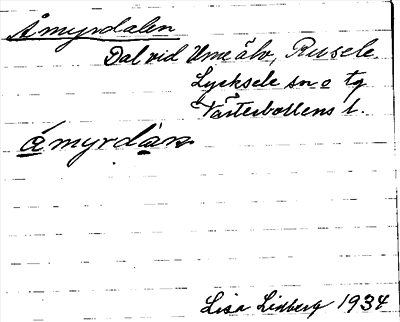 Åmyrdalen
Dal vid Ume älv, Rusele
Lycksele sn o tg
Västerbottens l.
åmyrdàn
Lisa Lidberg 1934